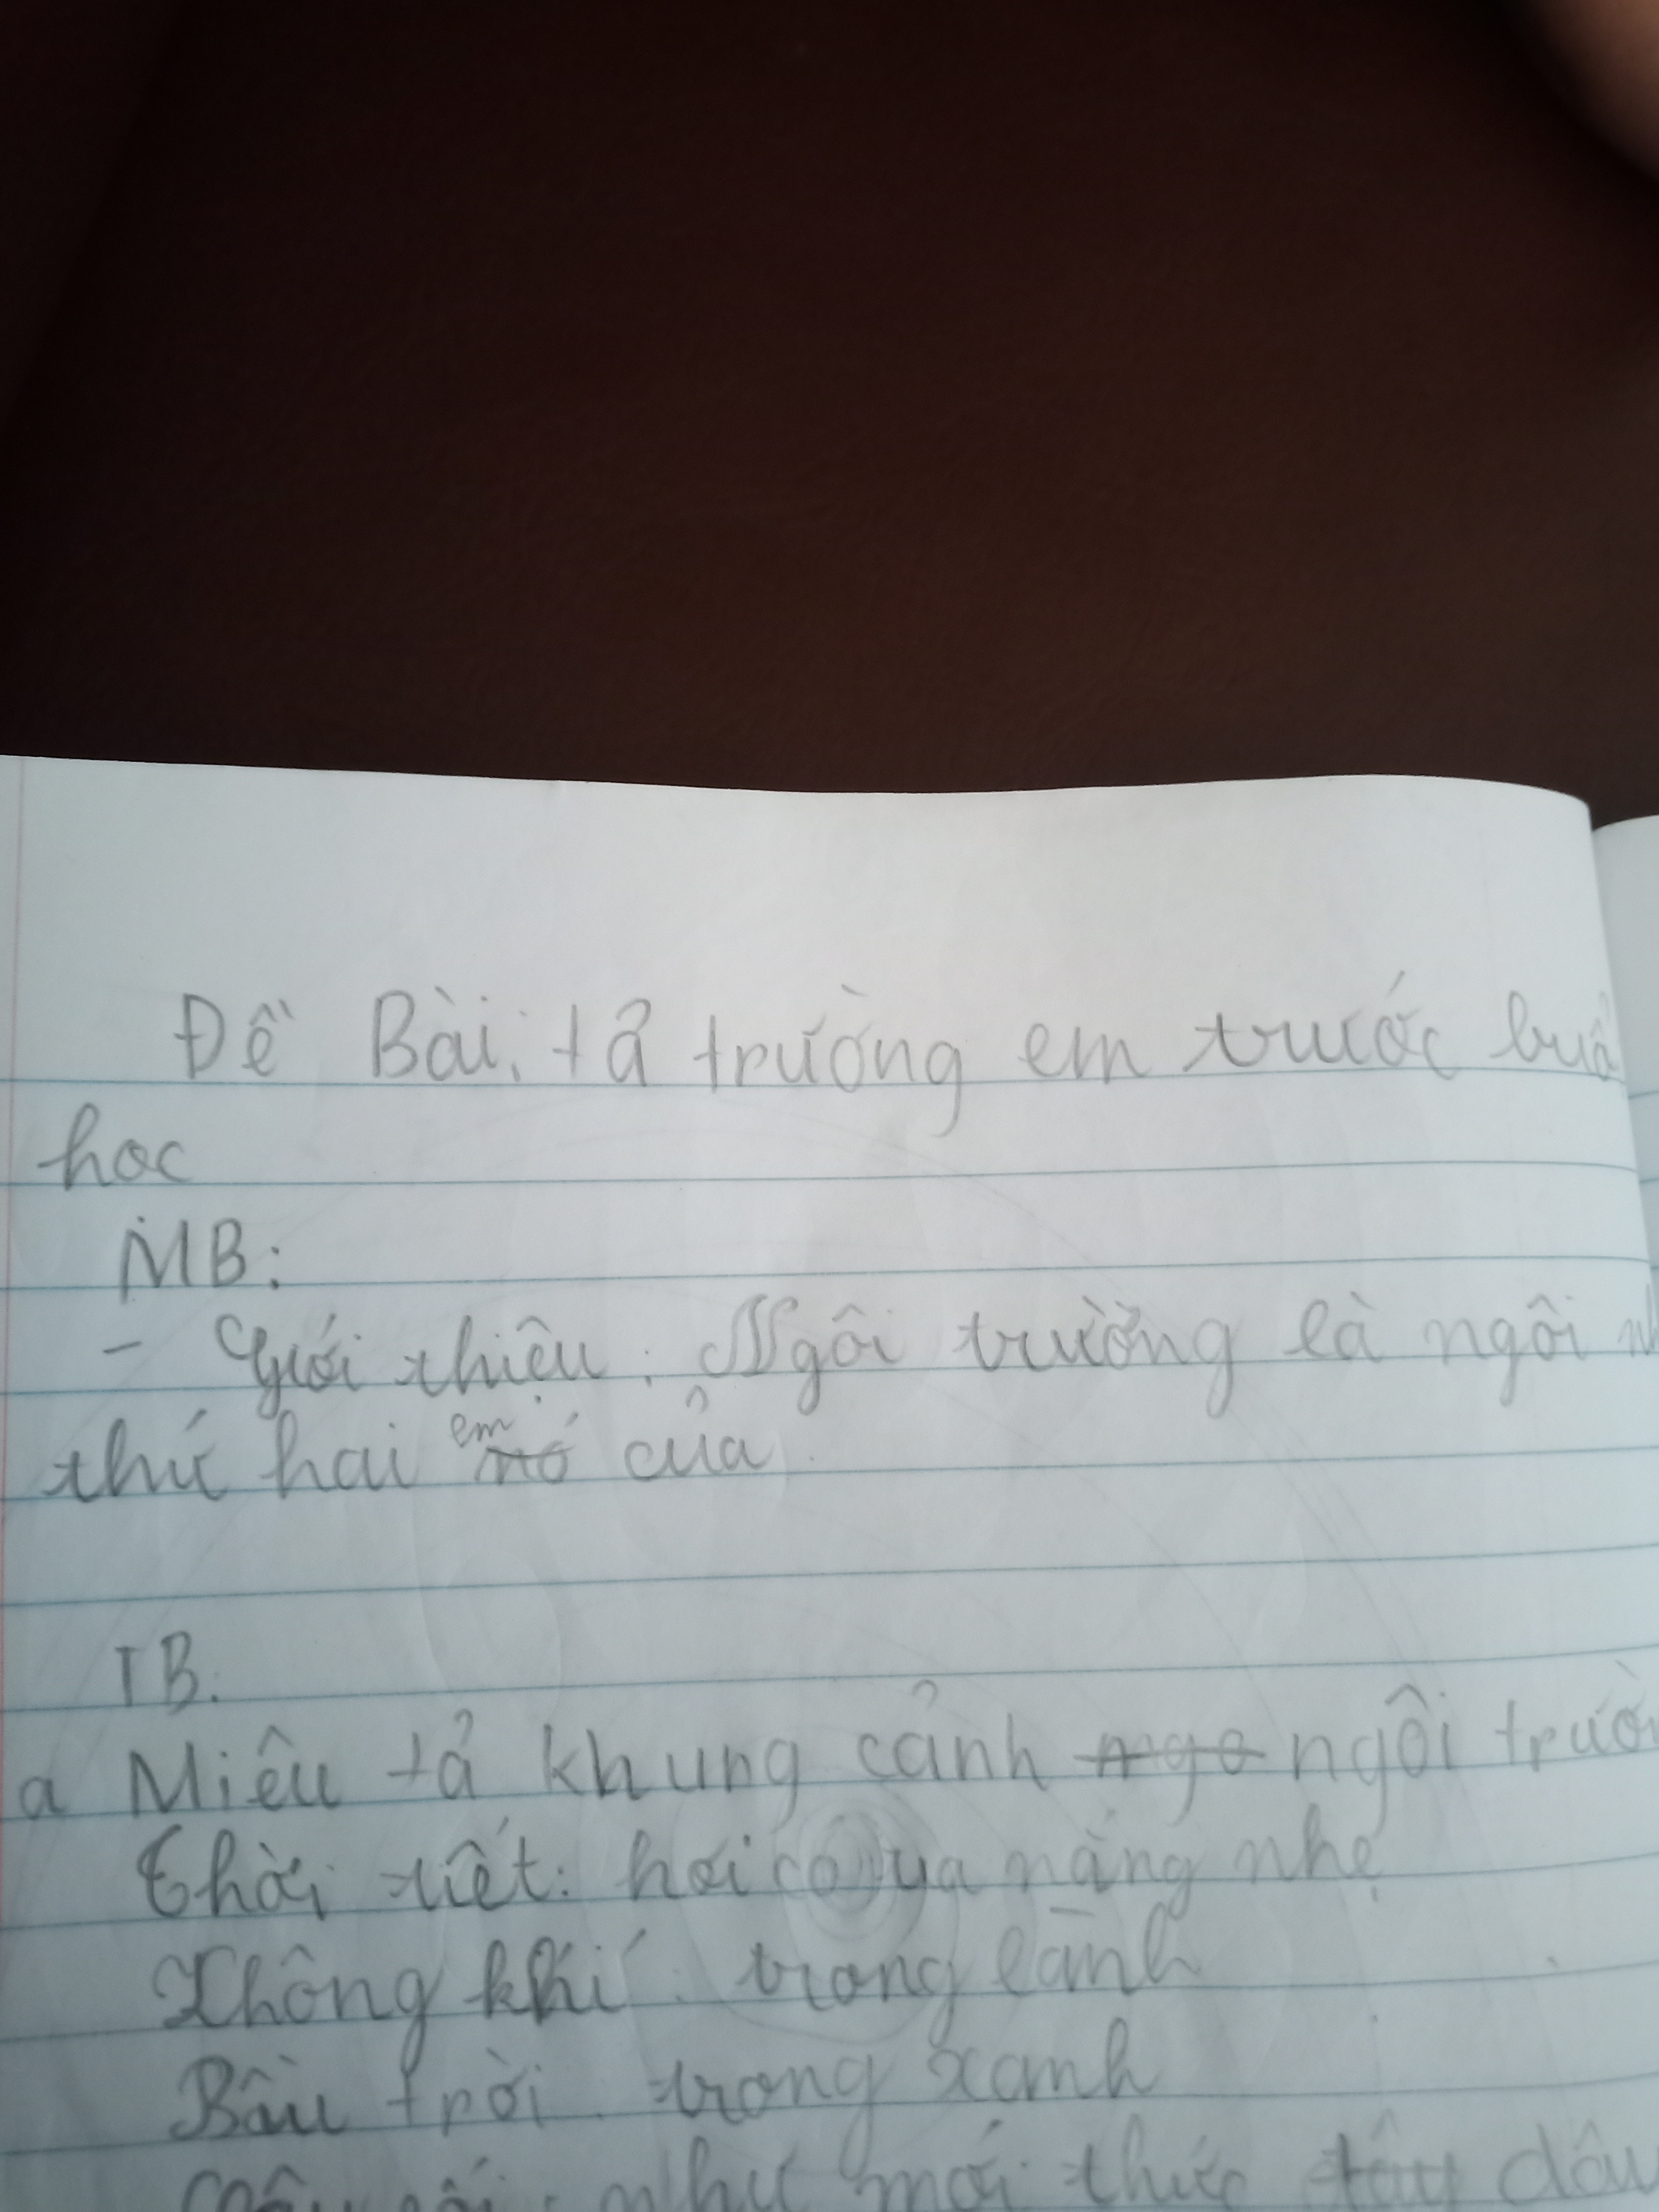 Đề Bài: tả trường em trước buổ
học
MB:
- Giới thiệu: Ngôi trường là ngôi
thứ hai em nó của
TB.
a Miêu tả khung cảnh ngo ngôi trườn
Thời tiết: hơi nắng nhẹ
Không khí: trong lành
Bầu trời: trong xanh
như mới thức dậy